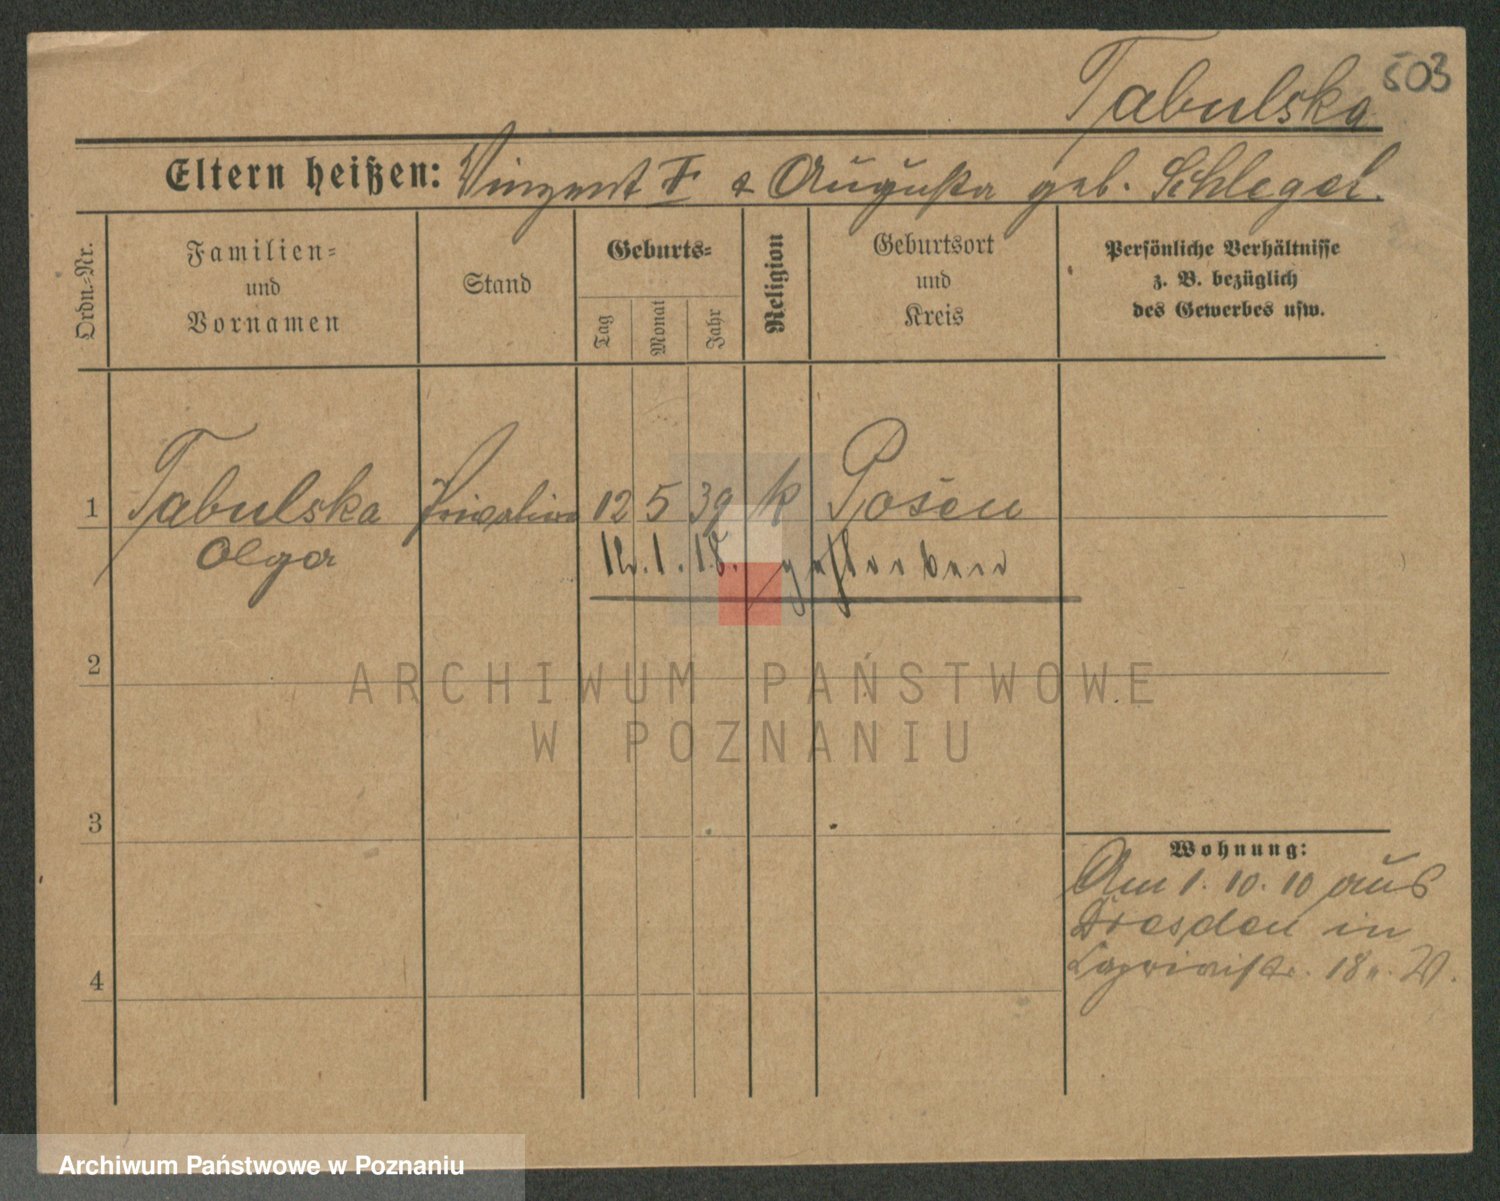 503
Tabulska
Eltern heißen: Vinzent T & Augusta geb. Schlegel.
Ordn.-Nr.
Familien- und Vornamen
Stand
Geburts-
Tag
Monat
Jahr
Religion
Geburtsort und Kreis
Persönliche Verhältnisse
z. B. bezüglich
des Gewerbes usw.
1 Tabulska 12 5 39 k Posen
Olga
12.1.18. gestorben
2
ARCHIWUM PAŃSTWOWE
W POZNANIU
3
Wohnung:
Am 1. 10. 10 aus
Dresden in
18 W.
4
Archiwum Państwowe w Poznaniu